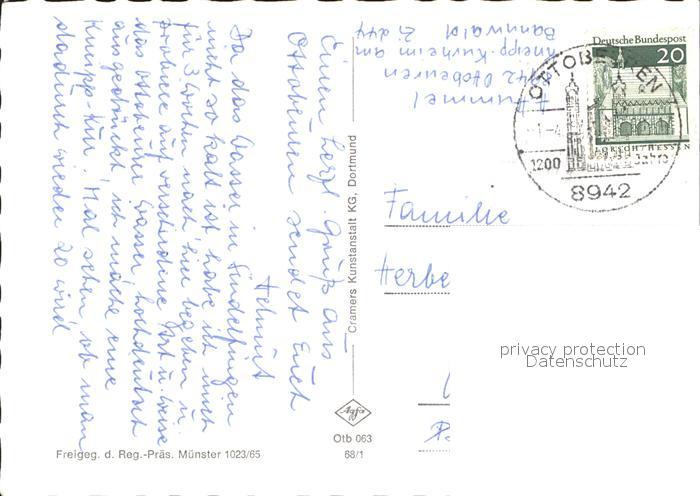 Einen herzl. Gruß aus
Ottobeuren sendet Euch
Helmut
Da das Wasser in Sindelfingen
nicht so kalt ist habe ich mich
für 3 Wochen nach hier begeben u.
probiere auf verschiedene Art u. Weise
das Ottobeurer Wasser hochdeutsch
ausgedrückt, ich mache eine
Kneipp-Kur. Mal sehen, ob man
dadurch wieder 20 wird
Hummel
8942 Ottobeuren
Kneipp-Kurheim am
Bannwald Zi 244
Deutsche Bundespost
20
LORSCH/HESSEN
OTTOBEUREN
1200 Jahre
8942
Familie
Herbe
privacy protection
Datenschutz
Cramers Kunstanstalt KG, Dortmund
Agfa
Otb 063
68/1
Freigeg. d. Reg.-Präs. Münster 1023/65